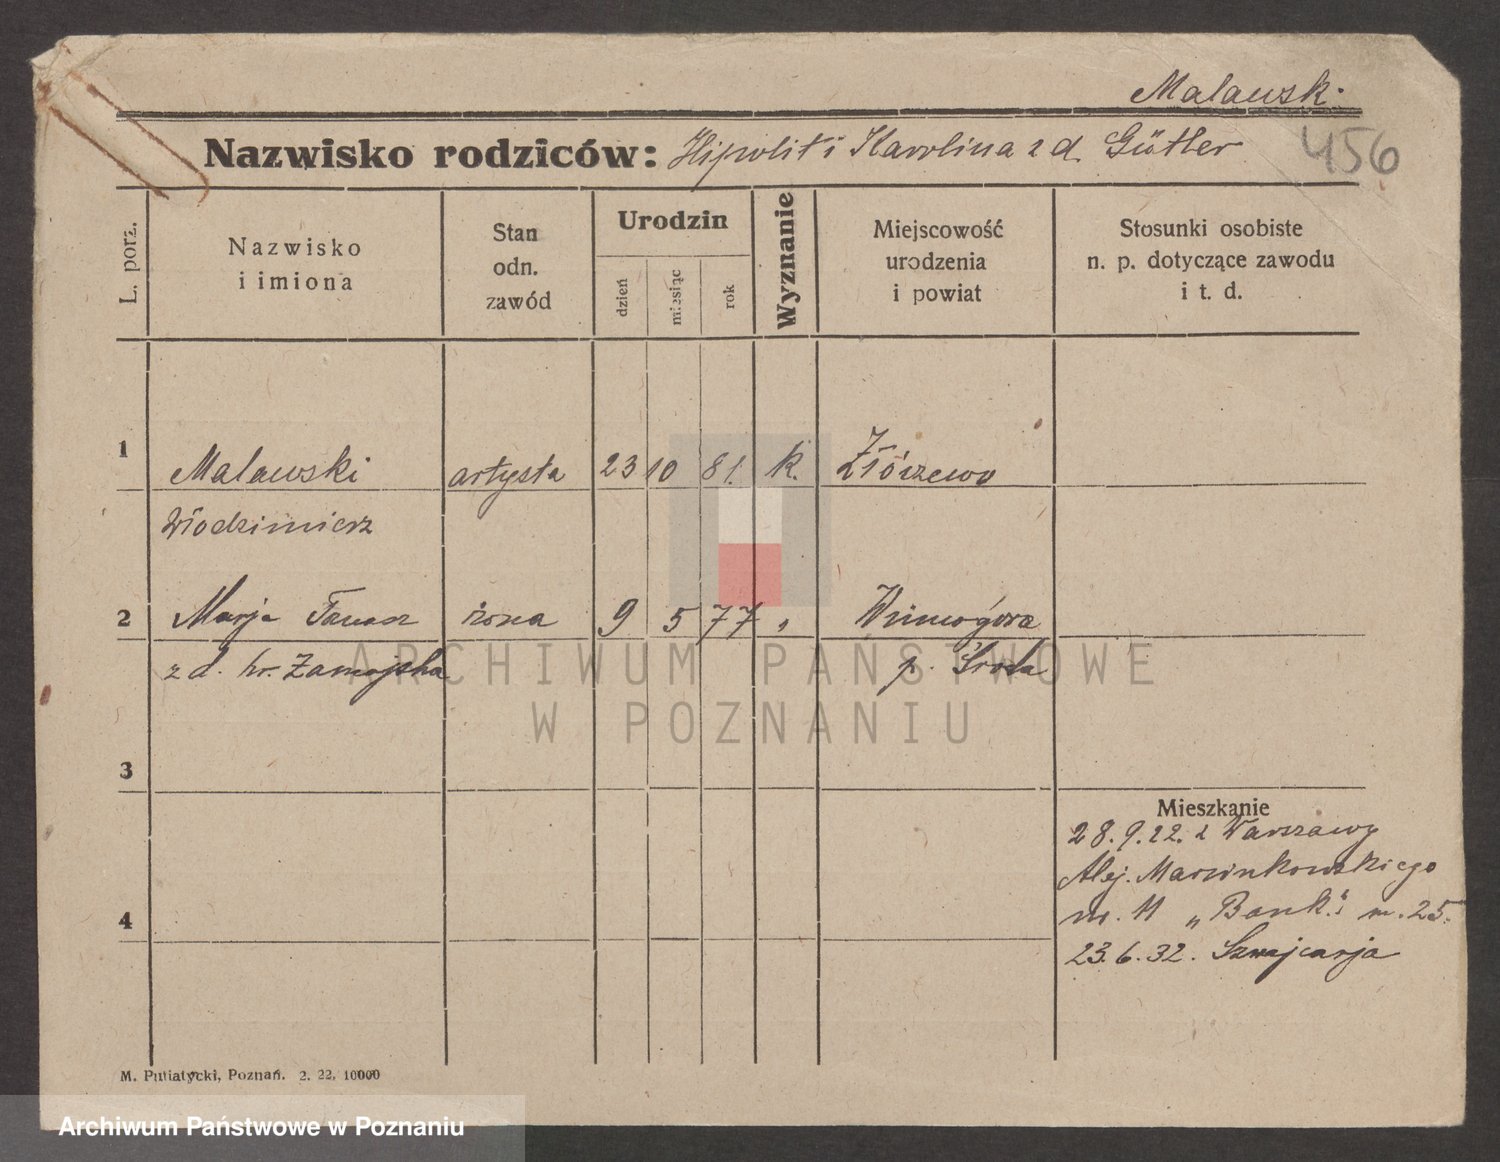 Malawski
456
Nazwisko rodziców: Hipolit i Karolina z d. Gütler
L. porz.
Nazwisko
i imiona
Stan
odn.
zawód
Urodzin
dzień
miesiąc
rok
Wyznanie
Miejscowość
urodzenia
i powiat
Stosunki osobiste
n. p. dotyczące zawodu
i t. d.
1 Malawski artysta 23 10 81. k. Złórzewo
Włodzimierz
2 Marja Tanasz żona 9 5 77 „ Winnogóra
z d. hr. Zamojska p. Środa
ARCHIWUM PAŃSTWOWE
W POZNANIU
3
Mieszkanie
28.9.22. z Warszawy
Alej. Marcinkowskiego
nr. 11 „Bank" m. 25.
4
23.6.32. Szwajcarja
M. Putiatycki, Poznań. 2. 22. 10000
Archiwum Państwowe w Poznaniu